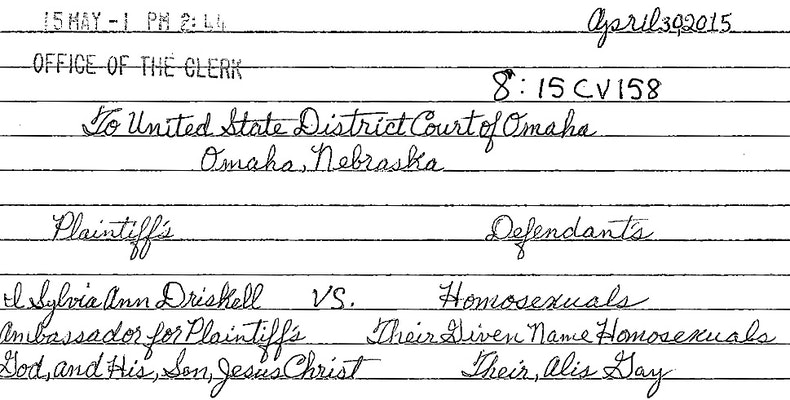 15 MAY -1 PM 2:44
April 30, 2015
OFFICE OF THE CLERK
8:15CV158
To United State District Court of Omaha
Omaha, Nebraska
Plaintiff's Defendant's
I Sylvia Ann Driskell VS. Homosexuals
Ambassador for Plaintiff's Their Given Name Homosexuals
God, and His, Son, Jesus Christ Their, Alis Gay